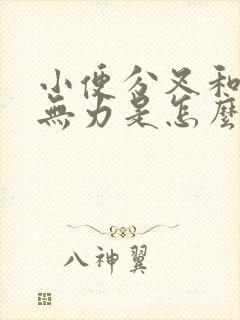 小便分叉和
無力是怎麼
八神翼